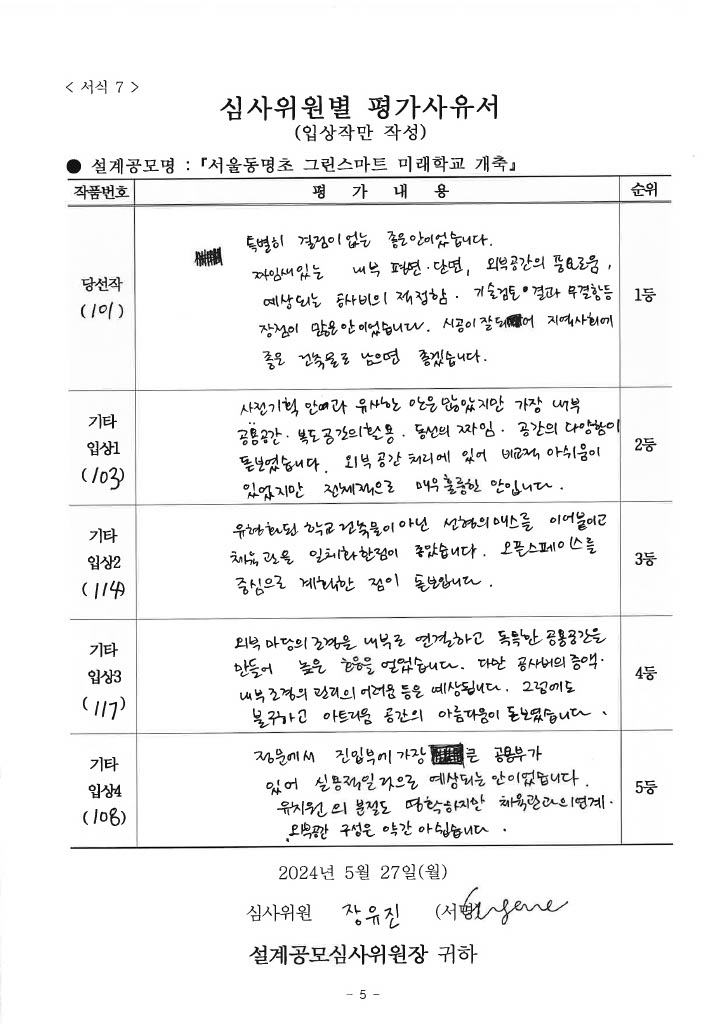 < 서식 7 >
심사위원별 평가사유서
(입상작만 작성)
● 설계공모명 : 『서울동명초 그린스마트 미래학교 개축』
작품번호 평 가 내 용 순위
당선작
(101)
특별히 결점이 없는 좋은 안이었습니다.
짜임새있는 내부 평면·단면, 외부공간의 풍요로움,
예상되는 공사비의 적정함. 기술검토 결과 무결함등
장점이 많은 안이었습니다. 시공이 잘되어 지역사회에
좋은 건축물로 남으면 좋겠습니다.
1등
기타
입상1
(103)
사전기획 안과 유사한 안은 많았지만 가장 내부
공용공간·복도공간의 활용. 동선의 짜임. 공간의 다양함이
돋보였습니다. 외부공간 처리에 있어 비교적 아쉬움이
있었지만 전체적으로 매우 훌륭한 안입니다.
2등
기타
입상2
(114)
유형화된 학교건축물이 아닌 선형의 매스를 이어붙이고
체육관을 일체화한점이 좋았습니다. 오픈스페이스를
중심으로 계획한 점이 돋보입니다.
3등
기타
입상3
(117)
외부마당의 조경을 내부로 연결하고 독특한 공용공간을
만들어 높은 호응을 얻었습니다. 다만 공사비의 증액·
내부조경의 관리의 어려움 등은 예상됩니다. 그럼에도
불구하고 아트리움 공간의 아름다움이 돋보였습니다.
4등
기타
입상4
(108)
정문에서 진입부에 가장 큰 공용부가
있어 실용적일 것으로 예상되는 안이었습니다.
유치원의 분절도 명확하지만 체육관과의 연계·
외부공간 구성은 약간 아쉽습니다.
5등
2024년 5월 27일(월)
심사위원 장유진 (서명) Eugene
설계공모심사위원장 귀하
- 5 -